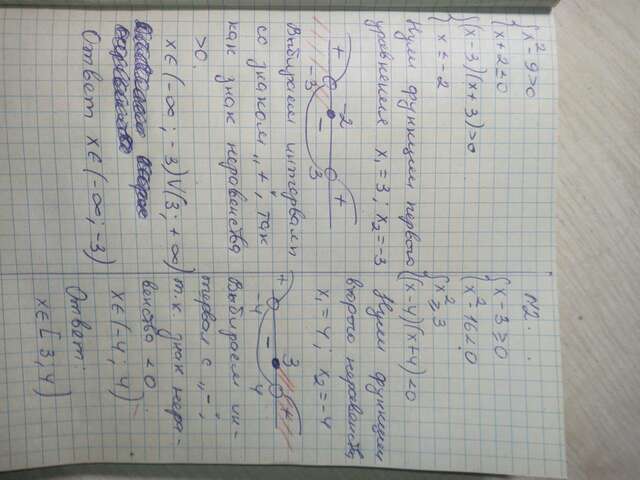 { x² - 9 > 0
{ x + 2 ≤ 0
{ (x - 3)(x + 3) > 0
{ x ≤ -2
Нули функции первого
уравнения x₁ = 3; x₂ = -3
+ -3 -2 - 3 +
Выбираем интервалы
со знаком „+", так
как знак неравенства
> 0.
x ∈ (-∞; -3) V (3; +∞)
Ответ x ∈ (-∞; -3)
N2.
{ x - 3 ≥ 0
{ x² - 16 < 0
{ x ≥ 3
{ (x - 4)(x + 4) < 0
Нули функции
второго неравенства
x₁ = 4; x₂ = -4
+ -4 - 3 4 +
Выбираем ин-
тервал с „-",
т.к. знак нера-
венства < 0
x ∈ (-4; 4)
Ответ:
x ∈ [3; 4)